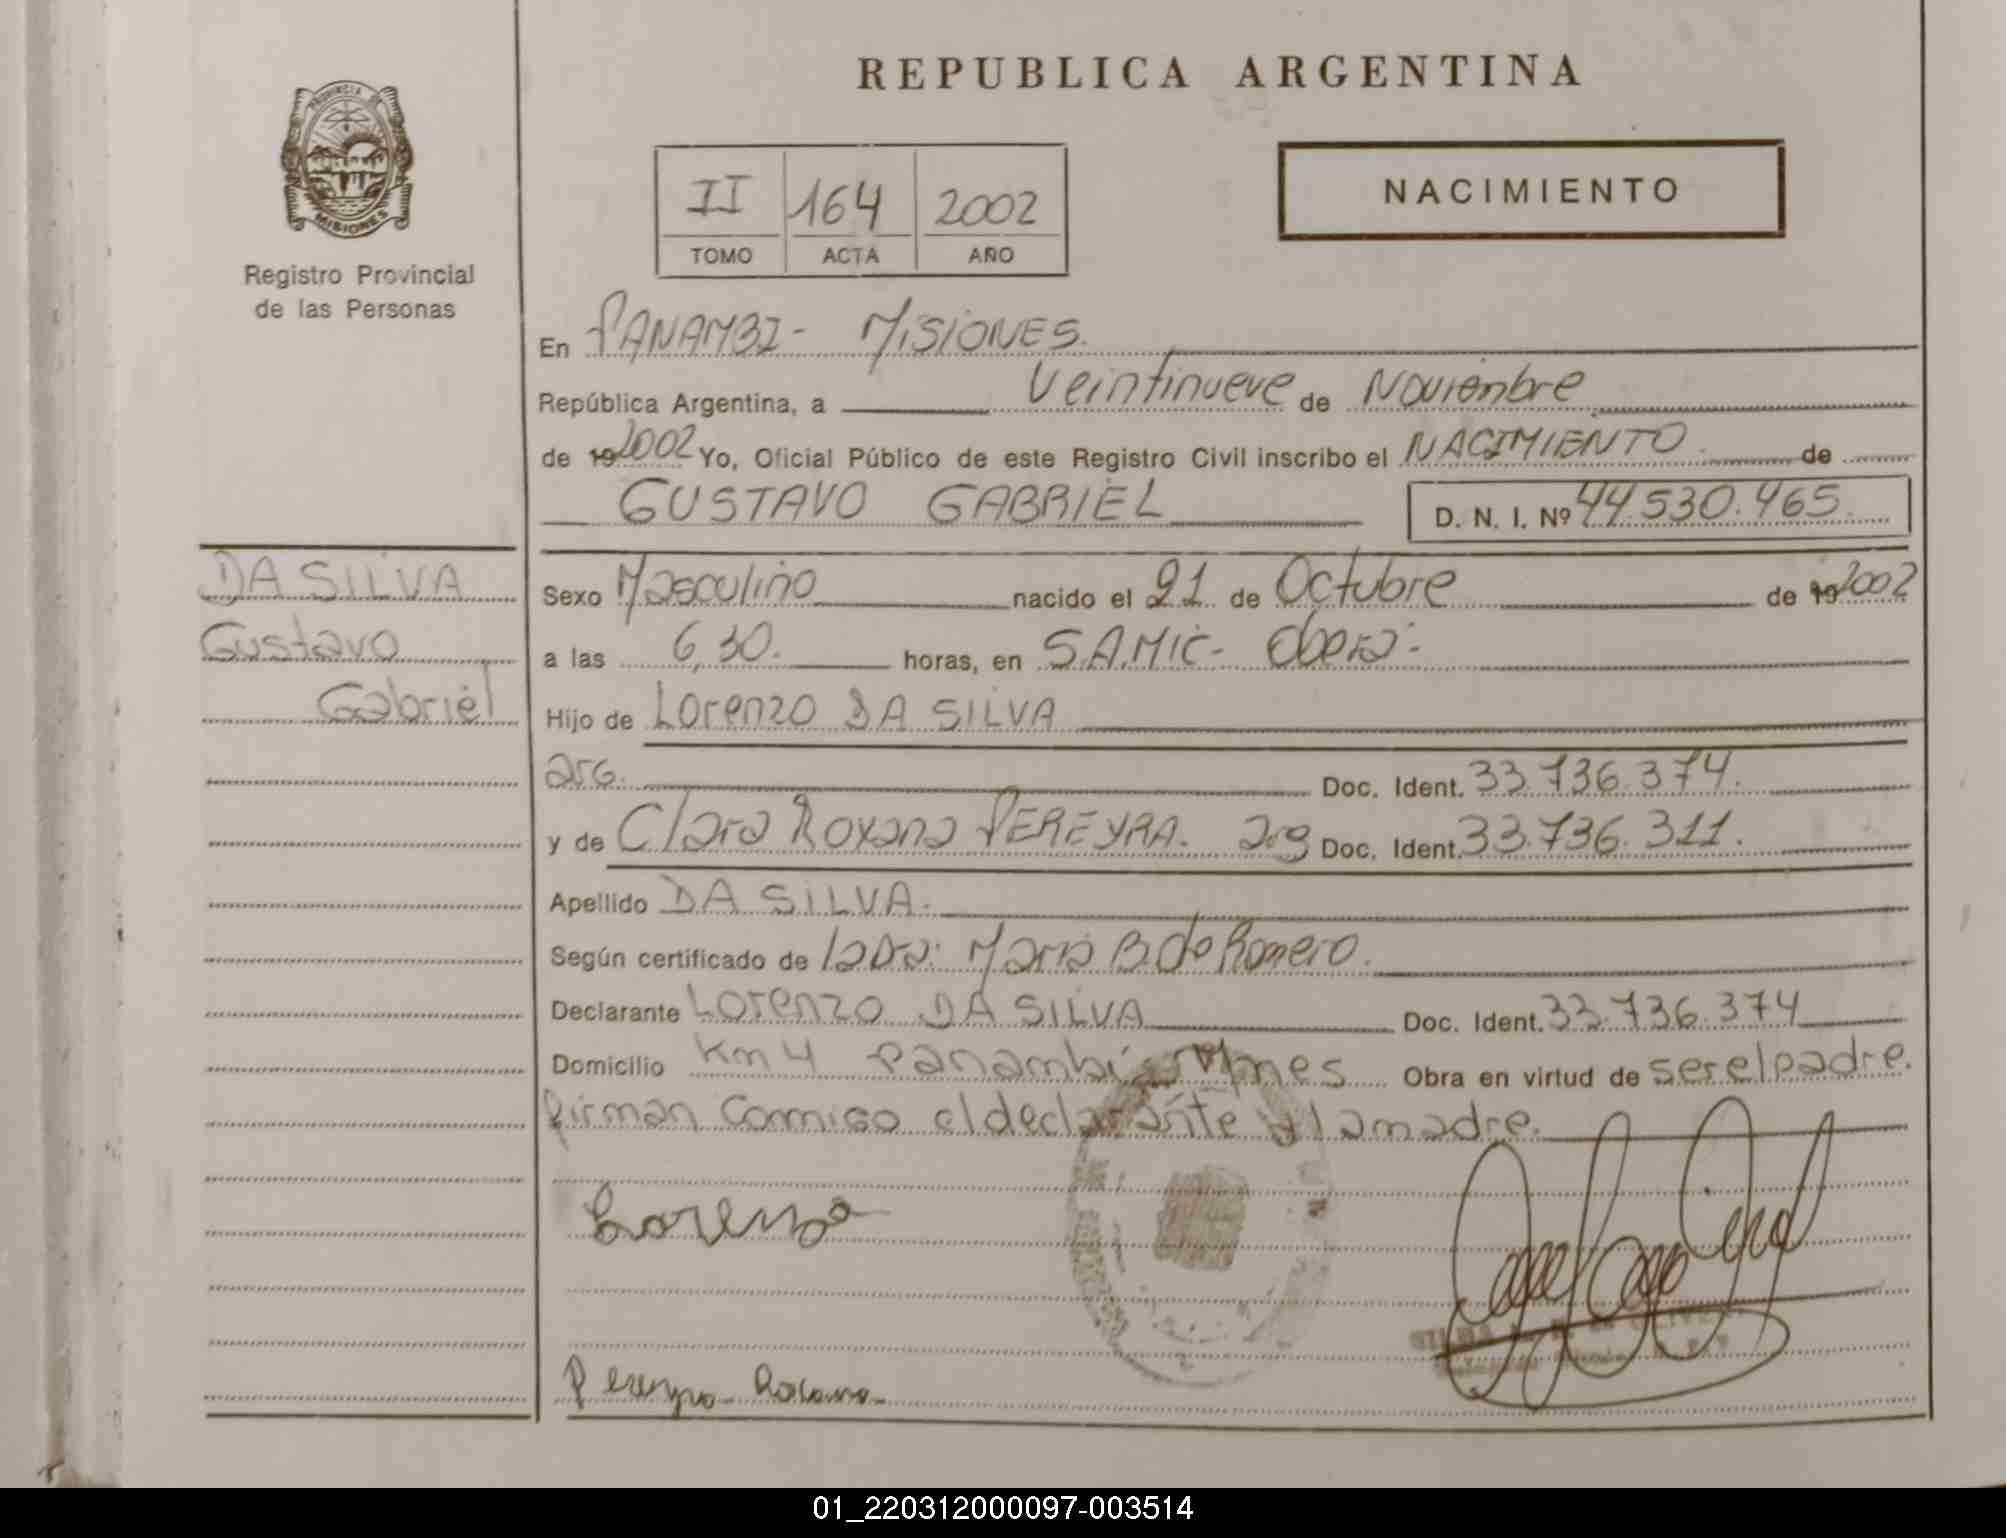 REPUBLICA ARGENTINA
PROVINCIA DE
MISIONES
Registro Provincial
de las Personas
II 164 2002
TOMO ACTA AÑO
NACIMIENTO
En PANAMBI - MISIONES.
República Argentina, a Veintinueve de Noviembre
de 19 2002 Yo, Oficial Público de este Registro Civil inscribo el NACIMIENTO de
GUSTAVO GABRIEL D. N. I. Nº 44.530.465.
DA SILVA
Gustavo
Gabriel
Sexo Masculino nacido el 21 de Octubre de 19 2002
a las 6,30. horas, en S.A.Mic- Obera.
Hijo de Lorenzo DA SILVA
arg. Doc. Ident. 33.736.374.
y de Clara Roxana PEREYRA. arg Doc. Ident. 33.736.311.
Apellido DA SILVA.
Según certificado de la Dra: Maria B de Romero.
Declarante Lorenzo DA SILVA Doc. Ident. 33.736.374
Domicilio Km 4 Panambí Mnes Obra en virtud de ser el padre.
firman conmigo el declarante y la madre.
Lorenzo
Pereyra Roxana
01_220312000097-003514